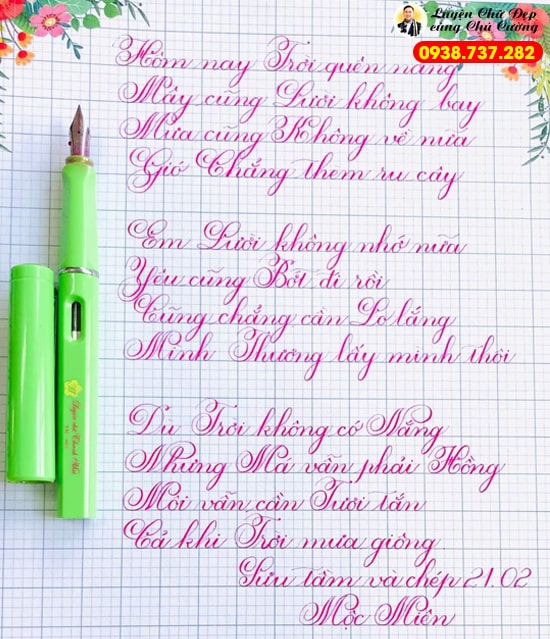 Luyện Chữ Đẹp
cùng Chú Cường
0938.737.282
Hôm nay Trời quên nắng
Mây cũng Lười không bay
Mưa cũng Không về nữa
Gió Chẳng thèm ru cây
Em Lười không nhớ nữa
Yêu cũng Bớt đi rồi
Cũng chẳng cần Lo lắng
Mình Thương lấy mình thôi
Dù Trời không có Nắng
Nhưng Má vẫn phải Hồng
Môi vẫn cần Tươi tắn
Cả khi Trời mưa giông
Sưu tầm và chép 21.02
Mộc Miên